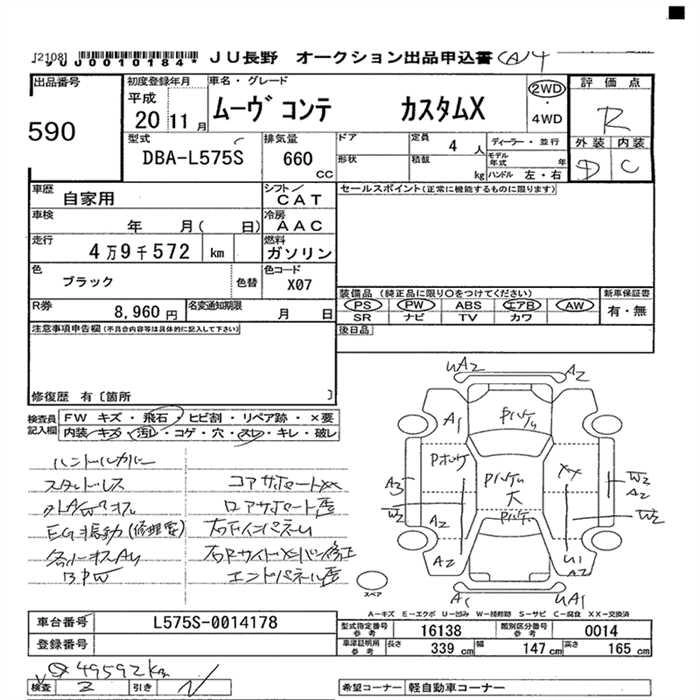 [2108]
*J0010184* JU長野 オークション出品申込書
出品番号 初度登録年月 車名・グレード 評価点
590 平成 20 11月 ムーヴ コンテ カスタムX 2WD・4WD R
型式 排気量 ドア 定員 4人 ディーラー・並行 外装 内装
DBA-L575S 660 CC 形状 積載 kg モデル年式 年 ハンドル 左・右 D C
車歴 自家用 シフト CAT セールスポイント(正常に機能するものに限ります)
車検 年 月( 日) 冷房 AAC
走行 4万9千572 km 燃料 ガソリン
色 ブラック 色替 色コード X07
装備品(純正品に限り○をつけてください) 新車保証書
R券 8,960円 名変通知期限 月 日 PS PW ABS エアB AW 有・無
SR ナビ TV カワ
注意事項申告欄(不具合内容等は具体的に記入して下さい) 後日品
修復歴 有〔箇所 〕
検査員記入欄 FW キズ・飛石・ヒビ割・リペア跡・×要
内装・キズ・汚レ・コゲ・穴・スレ・キレ・破レ
UA2 A2
A1 Pハゲ
Pボケ Pハゲ XX
A3 大 W2 A2
W2 A2 Pハゲ W2
A2 U1 A2
A1 UA1
ハンドルカバー
スタッドレス コアサポートXX
EG振動(修理要)
B.P.W エンドパネル歪
スペア
A-キズ E-エクボ U-凹み W-補修跡 S-サビ C-腐食 XX-交換済
車台番号 L575S-0014178 型式指定番号 参考 16138 類別区分番号 参考 0014
登録番号 車庫証明用 参考 長さ 339cm 幅 147cm 高さ 165cm
49592km
検査 引き 希望コーナー 軽自動車コーナー